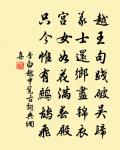 越王句踐破吳歸
義士還鄉盡錦衣
宮女如花滿春殿
只今惟有鷓鴣飛
李白越中覽古詞典網